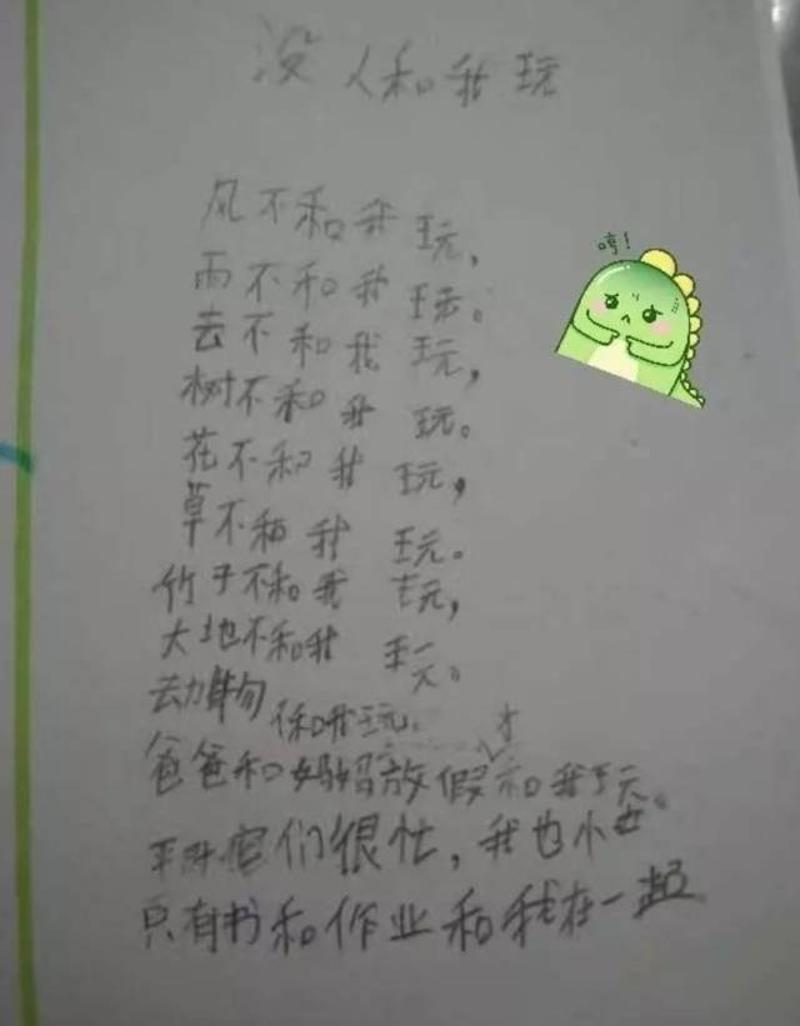 没人和我玩
风不和我玩,
哼!
雨不和我玩。
去不和我玩,
树不和我玩。
花不和我玩,
草不和我玩。
竹子不和我玩,
大地不和我玩。
动物和我玩。
爸爸和妈妈放假才和我玩。
平时它们很忙,我也
只有书和作业和我在一起